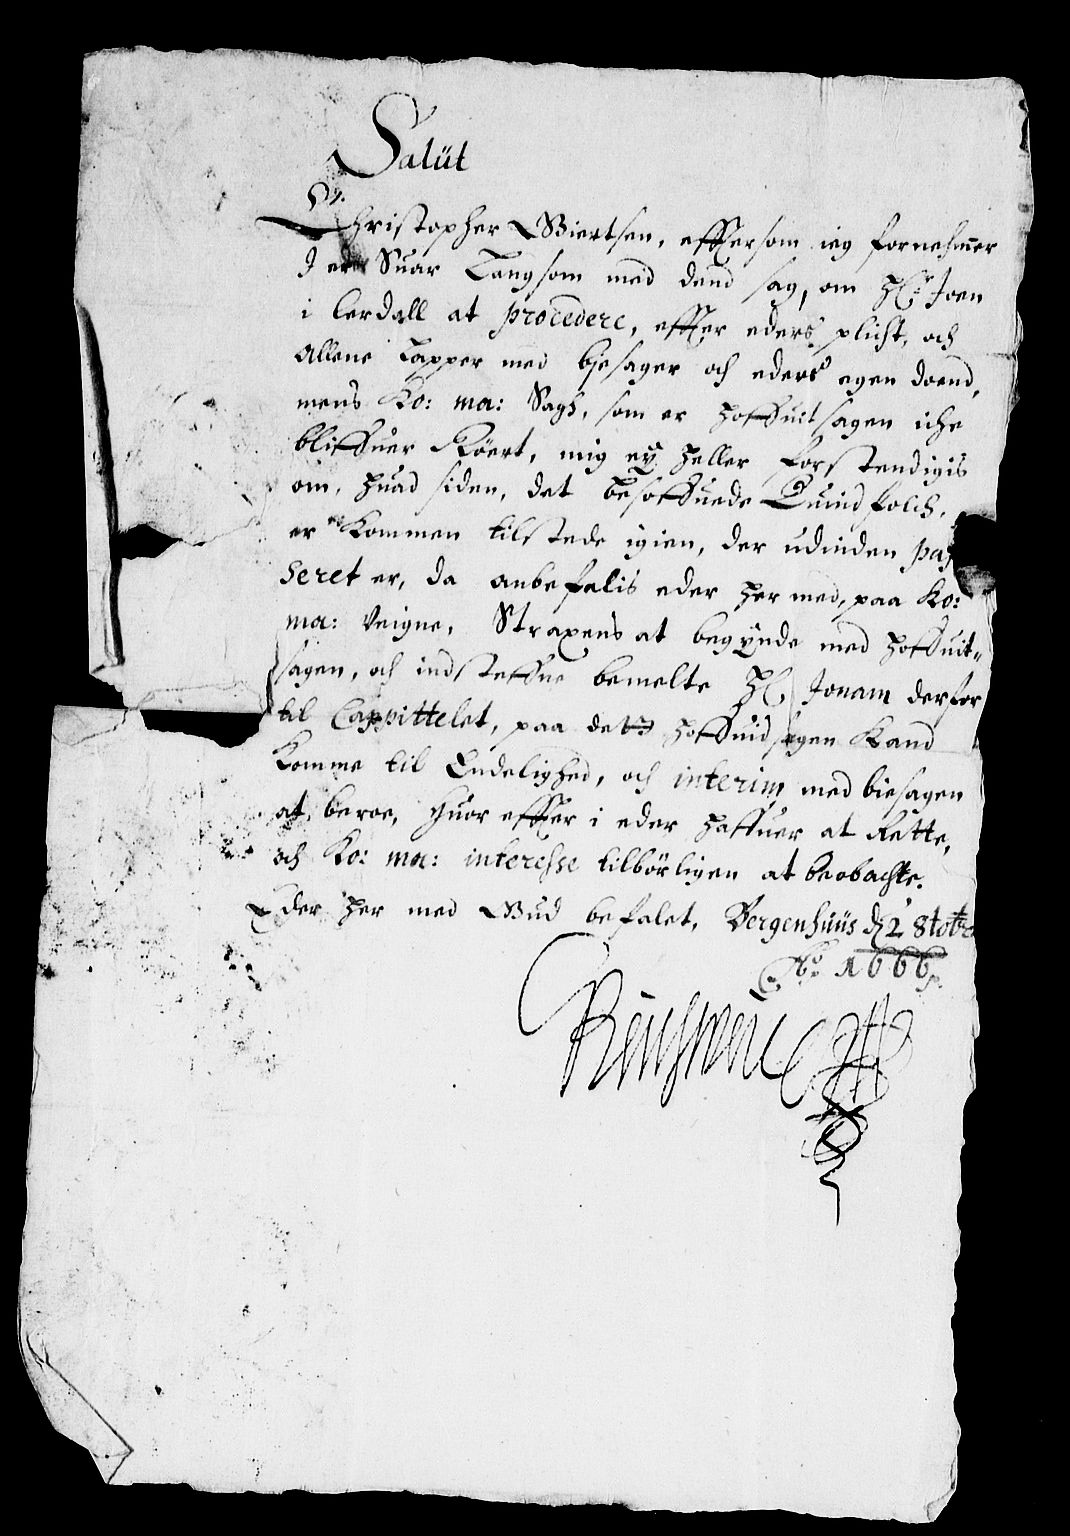 Salüt
Sr.
Christopher Giertsen, effttersom ieg fornehmer
I er Suar Langsom med dend sag, om Hr: Joen
i Lerdall at procedere, effter eders plicht, och
Allene Tapper med bjesager och eders egen doend,
mens Ko: ma: Sagh, som er hoffuitsagen iche
bliffuer Röert, mig ey heller forstendigis
om, huad siden, det besoffuede Quindfolch,
er kommen tilstede igien, der udinden pas
seret er, da anbefalis eder her med, paa Ko:
ma: Veigne, Straxens at begynde med hoffuit-
sagen, och indsteffne bemelte Hr Jonam derfor
til Cappittelet, paa dett hoffuidsagen Kand
Komme til Endelighed, och interim med biesagen
at beroe, huor effter i eder haffuer at Rette,
och Ko: ma: interesse tilbörligen at beobachte.
Eder her med Gud befalet, Bergenhuüs d 2 8tobr
Ao 1666